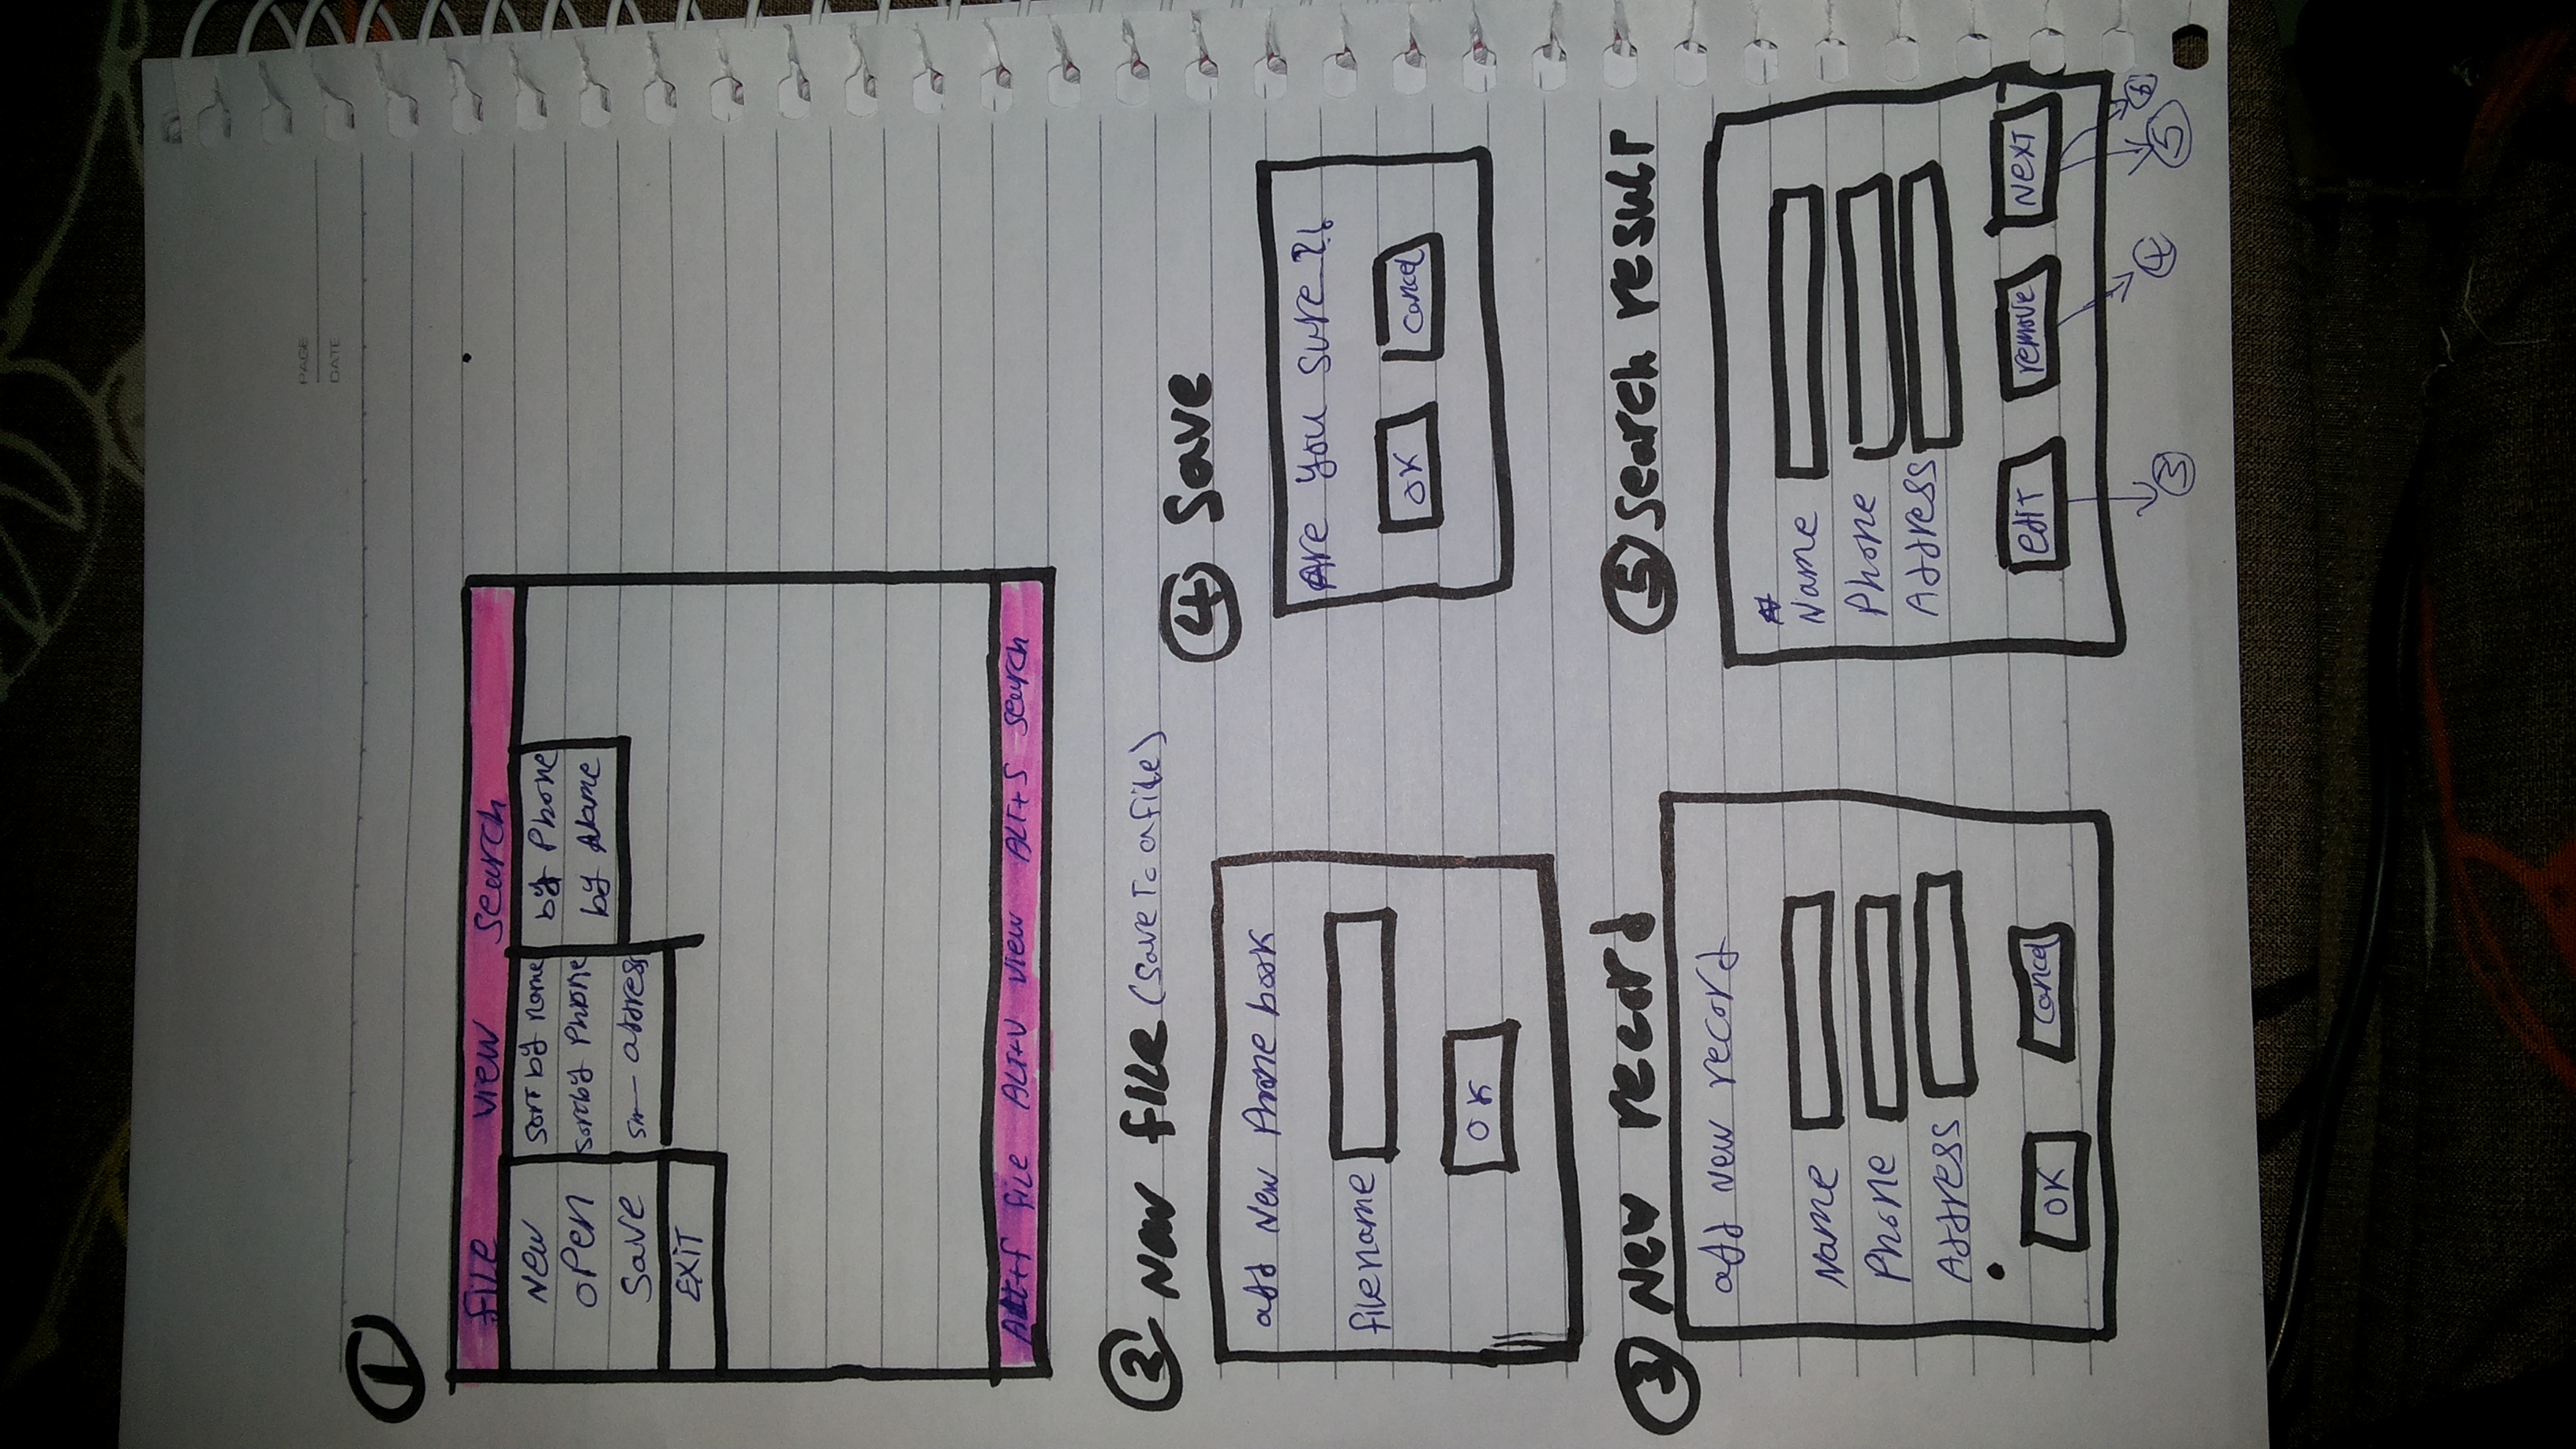 PAGE
DATE
1
file view search
New
open
save
EXIT
sort by name
sort by Phone
address
by Phone
by Name
Alt+f file ALT+V view ALT+S search
2 New file (save To a file)
add New Phone book
filename
OK
4 Save
Are you sure?!
OK Cancel
3 New record
add New record
Name
Phone
Address
OK Cancel
5 search result
Name
Phone
Address
edit remove NEXT
3 4 5 6